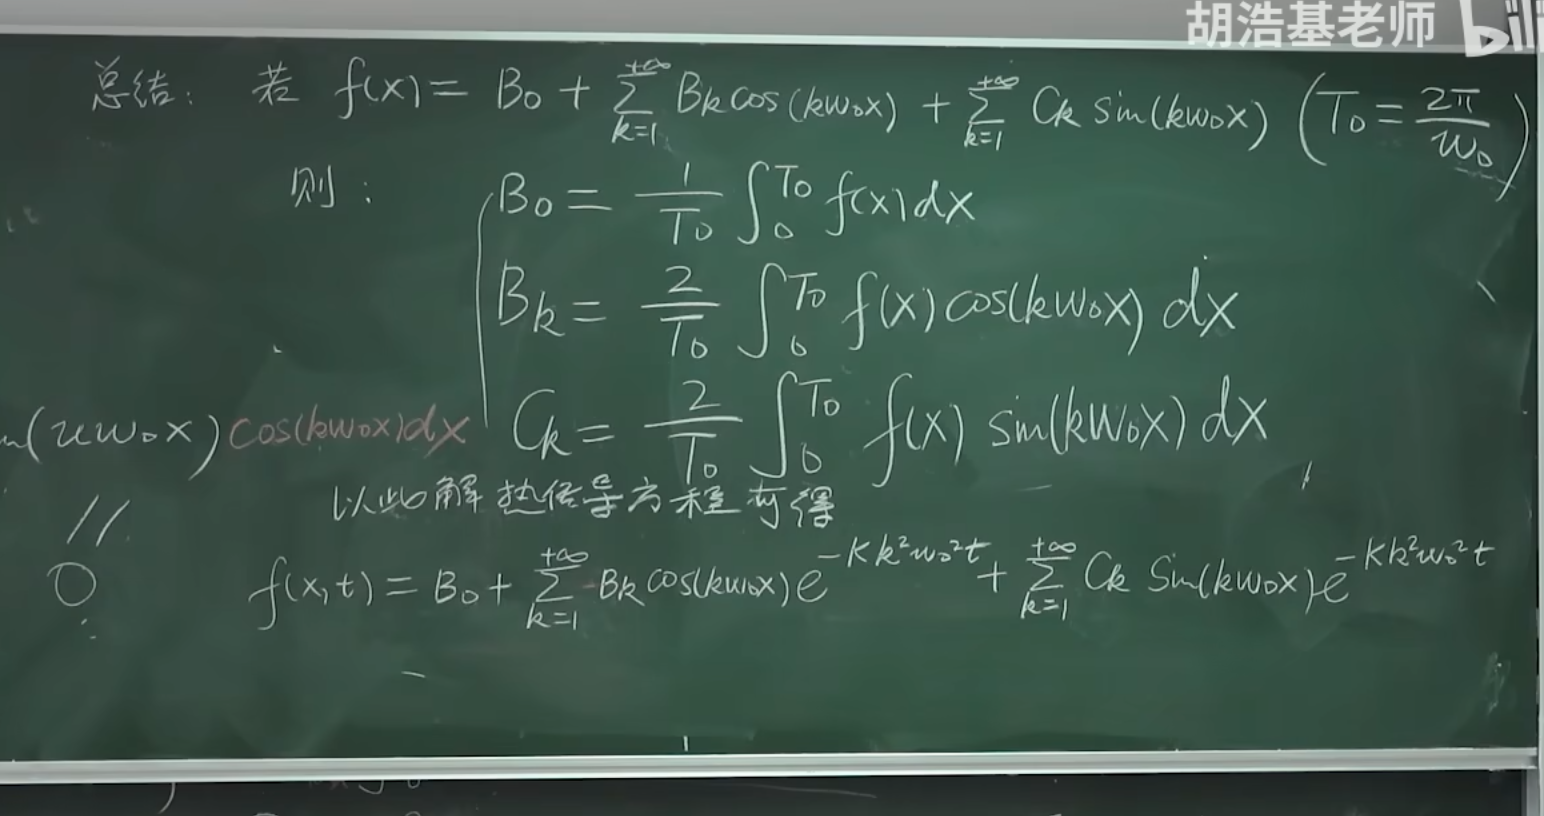 胡浩基老师 bili
总结: 若 f(x) = B₀ + ∑_{k=1}^{+∞} Bₖ cos(kw₀x) + ∑_{k=1}^{+∞} Cₖ sin(kw₀x) (T₀ = 2π/w₀)
则: B₀ = 1/T₀ ∫₀^{T₀} f(x)dx
Bₖ = 2/T₀ ∫₀^{T₀} f(x) cos(kw₀x) dx
Cₖ = 2/T₀ ∫₀^{T₀} f(x) sin(kw₀x) dx
n(nw₀x) cos(kw₀x)dx
以此解热传导方程可得
//
0
f(x,t) = B₀ + ∑_{k=1}^{+∞} Bₖ cos(kw₀x) e^{-Kk²w₀²t} + ∑_{k=1}^{+∞} Cₖ Sin(kw₀x) e^{-Kk²w₀²t}